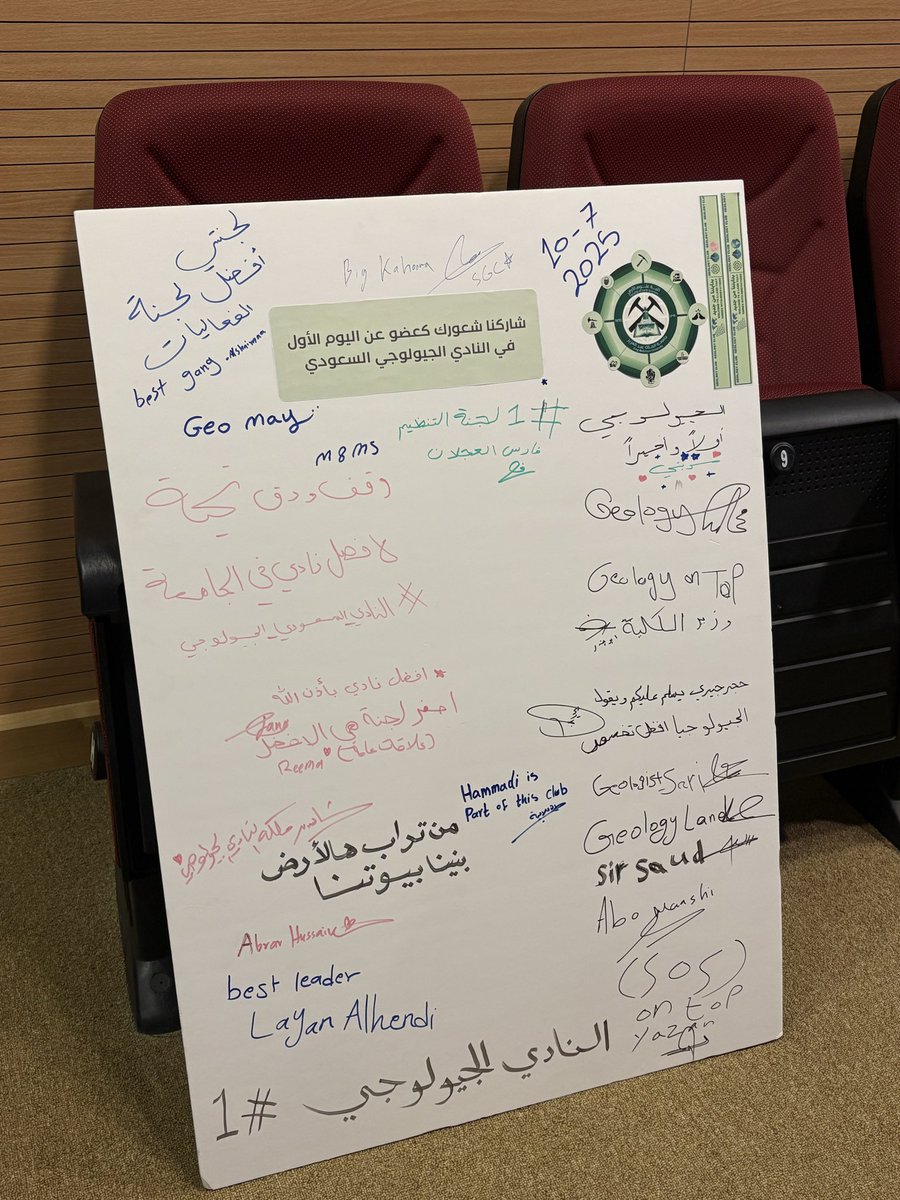 لجنتي
أفضل لجنة
الفعاليات
best gang
Big Kahona
SGC#
10-7
2025
شاركنا شعورك كعضو عن اليوم الأول
في النادي الجيولوجي السعودي
Geo may
M8MS
#1 لجنة التنظيم
فارس العجلان
الجيولوجي
أولاً وأخيراً
وقف ودق تحية
لافضل نادي في الجامعة
# النادي السعودي الجيولوجي
Geology
Geology on Top
وزير الكلبة
افضل نادي بأذن الله
اصغر لجنة هي الافضل
(علاقات عامة)
Reema
يسلم عليكم ويقول
الجيولوجيا افضل تخصص
Hammadi is
Part of this club
Geologist Sari
Geology Land
من تراب هالأرض
بنينا بيوتنا
Sir Saud
Abo
Abrar Hussain
best leader
Layan Alhendi
(SOS)
on top
النادي الجيولوجي
#1
9